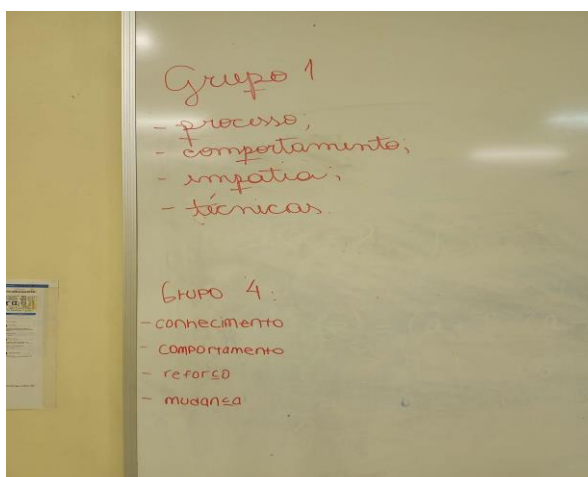 Grupo 1
- processo;
- comportamento;
- empatia;
- técnicas.
Grupo 4:
- conhecimento
- comportamento
- reforço
- mudança